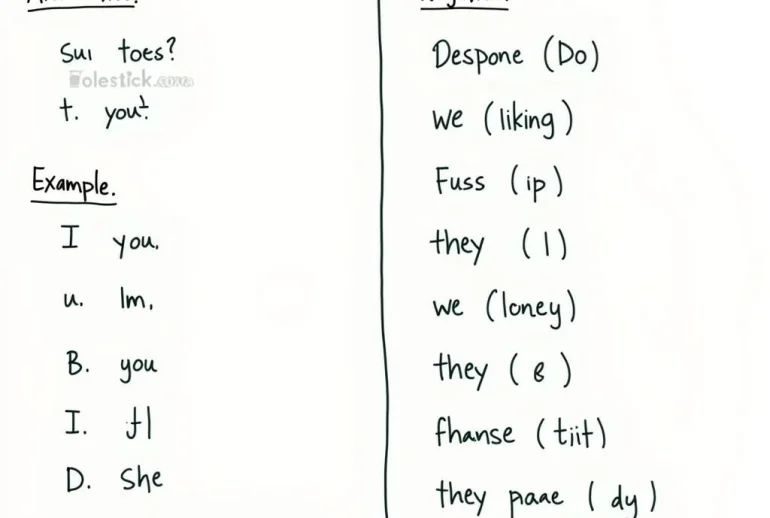 Sui toes?
t. you
Example.
I you.
u. Im,
B. you
I.
D. She
Despone (Do)
we (liking)
Fuss (ip)
they (l)
we (loney)
they (B)
fhanse (tiit)
they paae (dy)